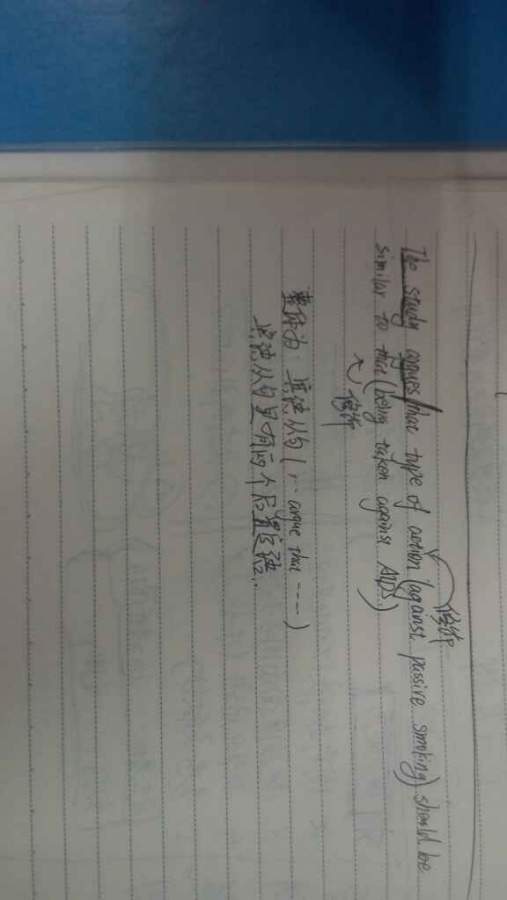 修饰
The study argues that type of action (against passive smoking) should be
similar to that (being taken against AIDS.)
修饰
整体为：宾语从句 ( argue that ----)
宾语从句里有两个后置定语.